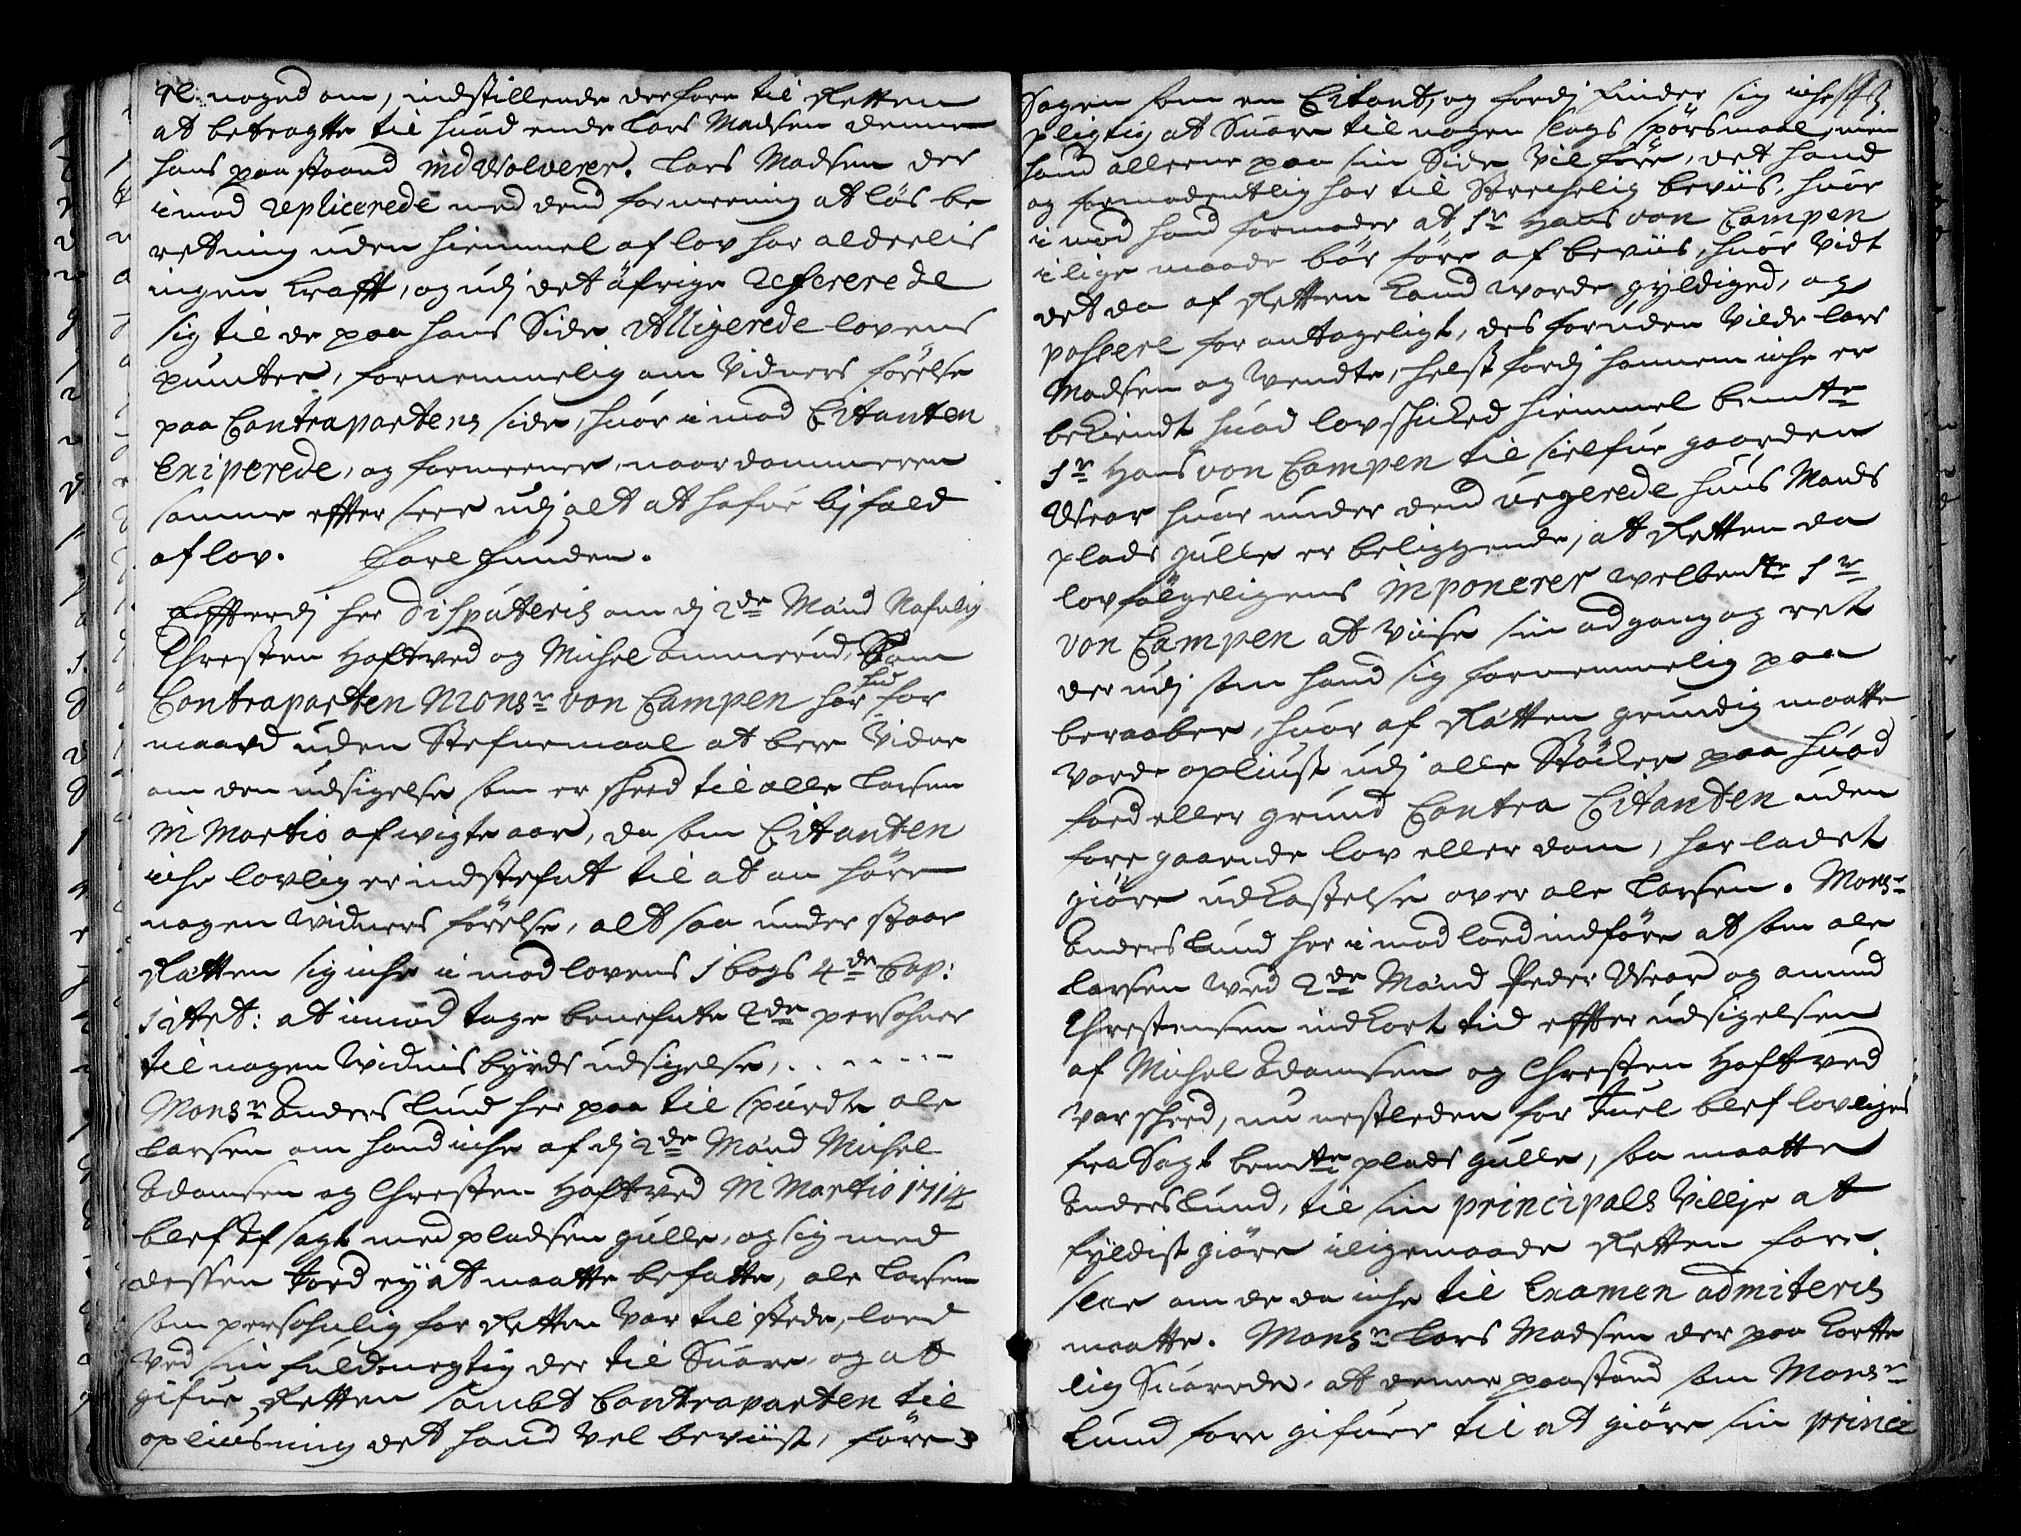 noged om, indstillende derfore til Retten
at betragtte til huad ende Lars Madsen denne
hans paastaand indvolverer. Lars Madsen der
imod replicerede med dend formeening at løs be
retning uden hiemmel af lov har alderlis
ingen krafft, og udj det öfrige refererede
sig til de paa hans Side Alligerede lovens
puncter, fornemmelig om Vidners förelse
paa Contrapartens side, huor imod Citanten
Exiperede, og formeener, naar dommeren
samme effter seer udj alt at hafue bifald
af lov. Forefunden.
Effterdj her disputeris om dj 2de Mænd Nafnlig
Chresten Haftved og Michel Ammerud, Som
Contraparten Monsr von Campen har hid for
maaed uden Stefnemaal at bere Vidne
om den udsigelse som er skeed til olle Larsen
in Martio afwigte aar, da som Citanten
iche lovlig er indstefnt til at an höre
nogen widners förelse, alt saa under staar
Rætten sig iche i mod lovens 1 bogs 4de Cap:
1 Art: at imod tage benefnte 2de persohner
til nogen Widnisbyrds udsigelse, . . - - - -
Monsr Anders Lund her paa til spurdte ole
Larsen om hand iche af dj 2de Mænd Michel
Adamsen og Chresten Haftved in Martio 1714
blef Af sagt med pladsen gulle, og sig med
dessen Jord ey at maatte befatte, ole Larsen
som persohnlig for Retten Var til stede, loed
Ved sin fuldmegtig der til Suare, og at
gifue Retten sambt Contraparten til
opliusning det hand Vel beviist, före
Sagen som en Citant, og fordj finder sig iche
pligtig at Suare til nogen slags spörsmaal, men
hand alleene paa sin Side Vil före, det hand
og formodentlig har til Strechelig beviis, huor
i mod hand formoder at Sr Hans von Campen
i lige maade bör före af beviis, huor vidt
det da af Retten kand worde gyldiged, og
passere for antageligt, des foruden Vilde Lars
Madsen og Vendte, helst fordj hannem iche er
bekiendt huad lovskiked hiemmel bemte
Sr Hans von Campen til sielfue gaarden
Ureor huor under dend urgerede huus Mands
plads gulle er beliggende, at Retten da
lovfölgeligens imponerer welbemte Sr
von Campen at Viise sin adgang og ret
der udj som hand sig fornemmelig paa
beraaber, huor af Rætten grundig maatte
Vorde opliust udj alle Stöcker paa huad
foed eller grund Contra Citanten uden
fore gaaende lov eller dom, har ladet
giöre udkastelse over ole Larsen. Monsr
Anders Lund her i mod loed indföre at som ole
Larsen Ved 2de Mænd Peder Ureor og Amund
Chrestensen ind kort tid effter udsigelsen
af Michel Adamsen og Chresten Haftved
Var skeed, nu nestleden for Juel blef lovligen
fra Sagt bemte plads gulle, saa maatte
Anders Lund, til sin principals Villje at
fyldist giöre iligemaade Retten fore
slae om de da iche til Examen admiteris
maatte. Monsr Lars Madsen der paa kortte
lig Suarede, at denne paastand som Monsr
Lund fore gifuer til at giöre sin princi